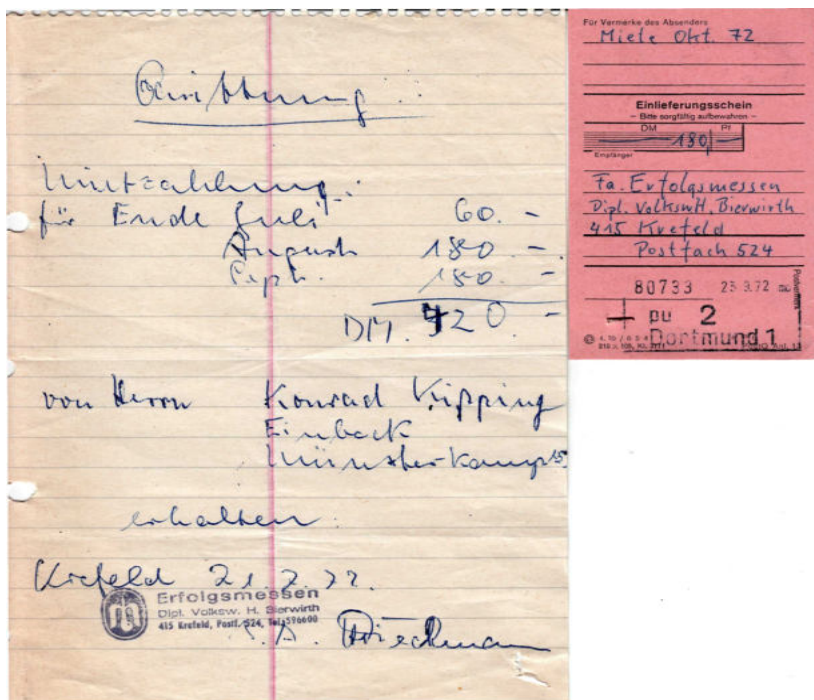 Quittung
Mietzahlung
für Ende Juli 60.-
August 180.-
Sept. 180.-
DM. 420.-
von Herrn Konrad Kipping
Einbeck
Münsterkamp 15.
erhalten
Krefeld 21.7.72.
Erfolgsmessen
Dipl. Volksw. H. Bierwirth
415 Krefeld, Postf. 524, Tel. 596600
Für Vermerke des Absenders
Miele Okt. 72
Einlieferungsschein
– Bitte sorgfältig aufbewahren –
DM Pf
180 —
Empfänger
Fa. Erfolgsmessen
Dipl. Volksw. H. Bierwirth
415 Krefeld
Postfach 524
80733 25.9.72
pu 2
Dortmund 1